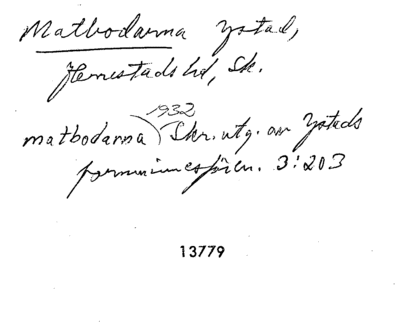 Matbodarna Ystad,
Herrestads hd, Sk.
1932
matbodarna Skr. utg. av Ystads
fornminnesfören. 3:203
13779